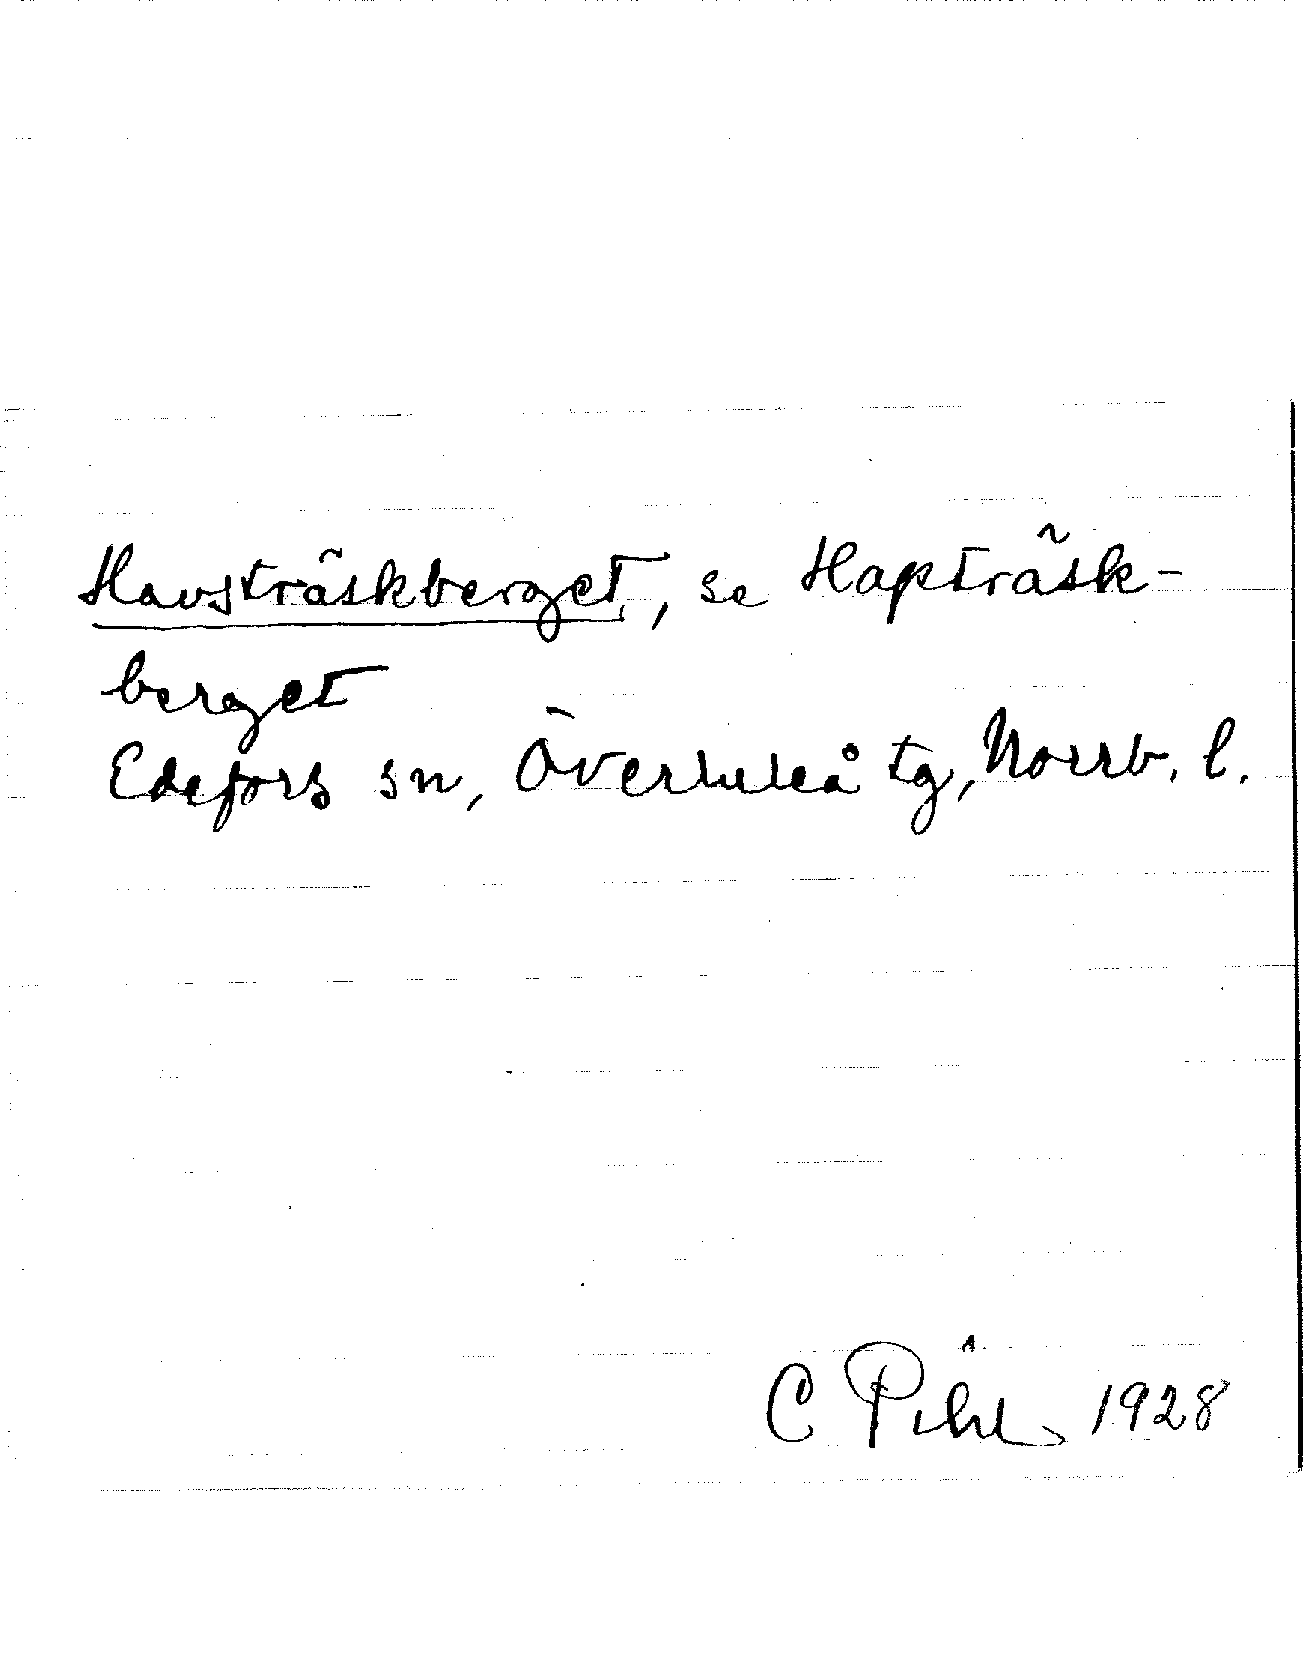 Havsträskberget, se Hapträsk-
berget
Edefors sn, Överluleå tg, Norrb. l.
C Pihl 1928